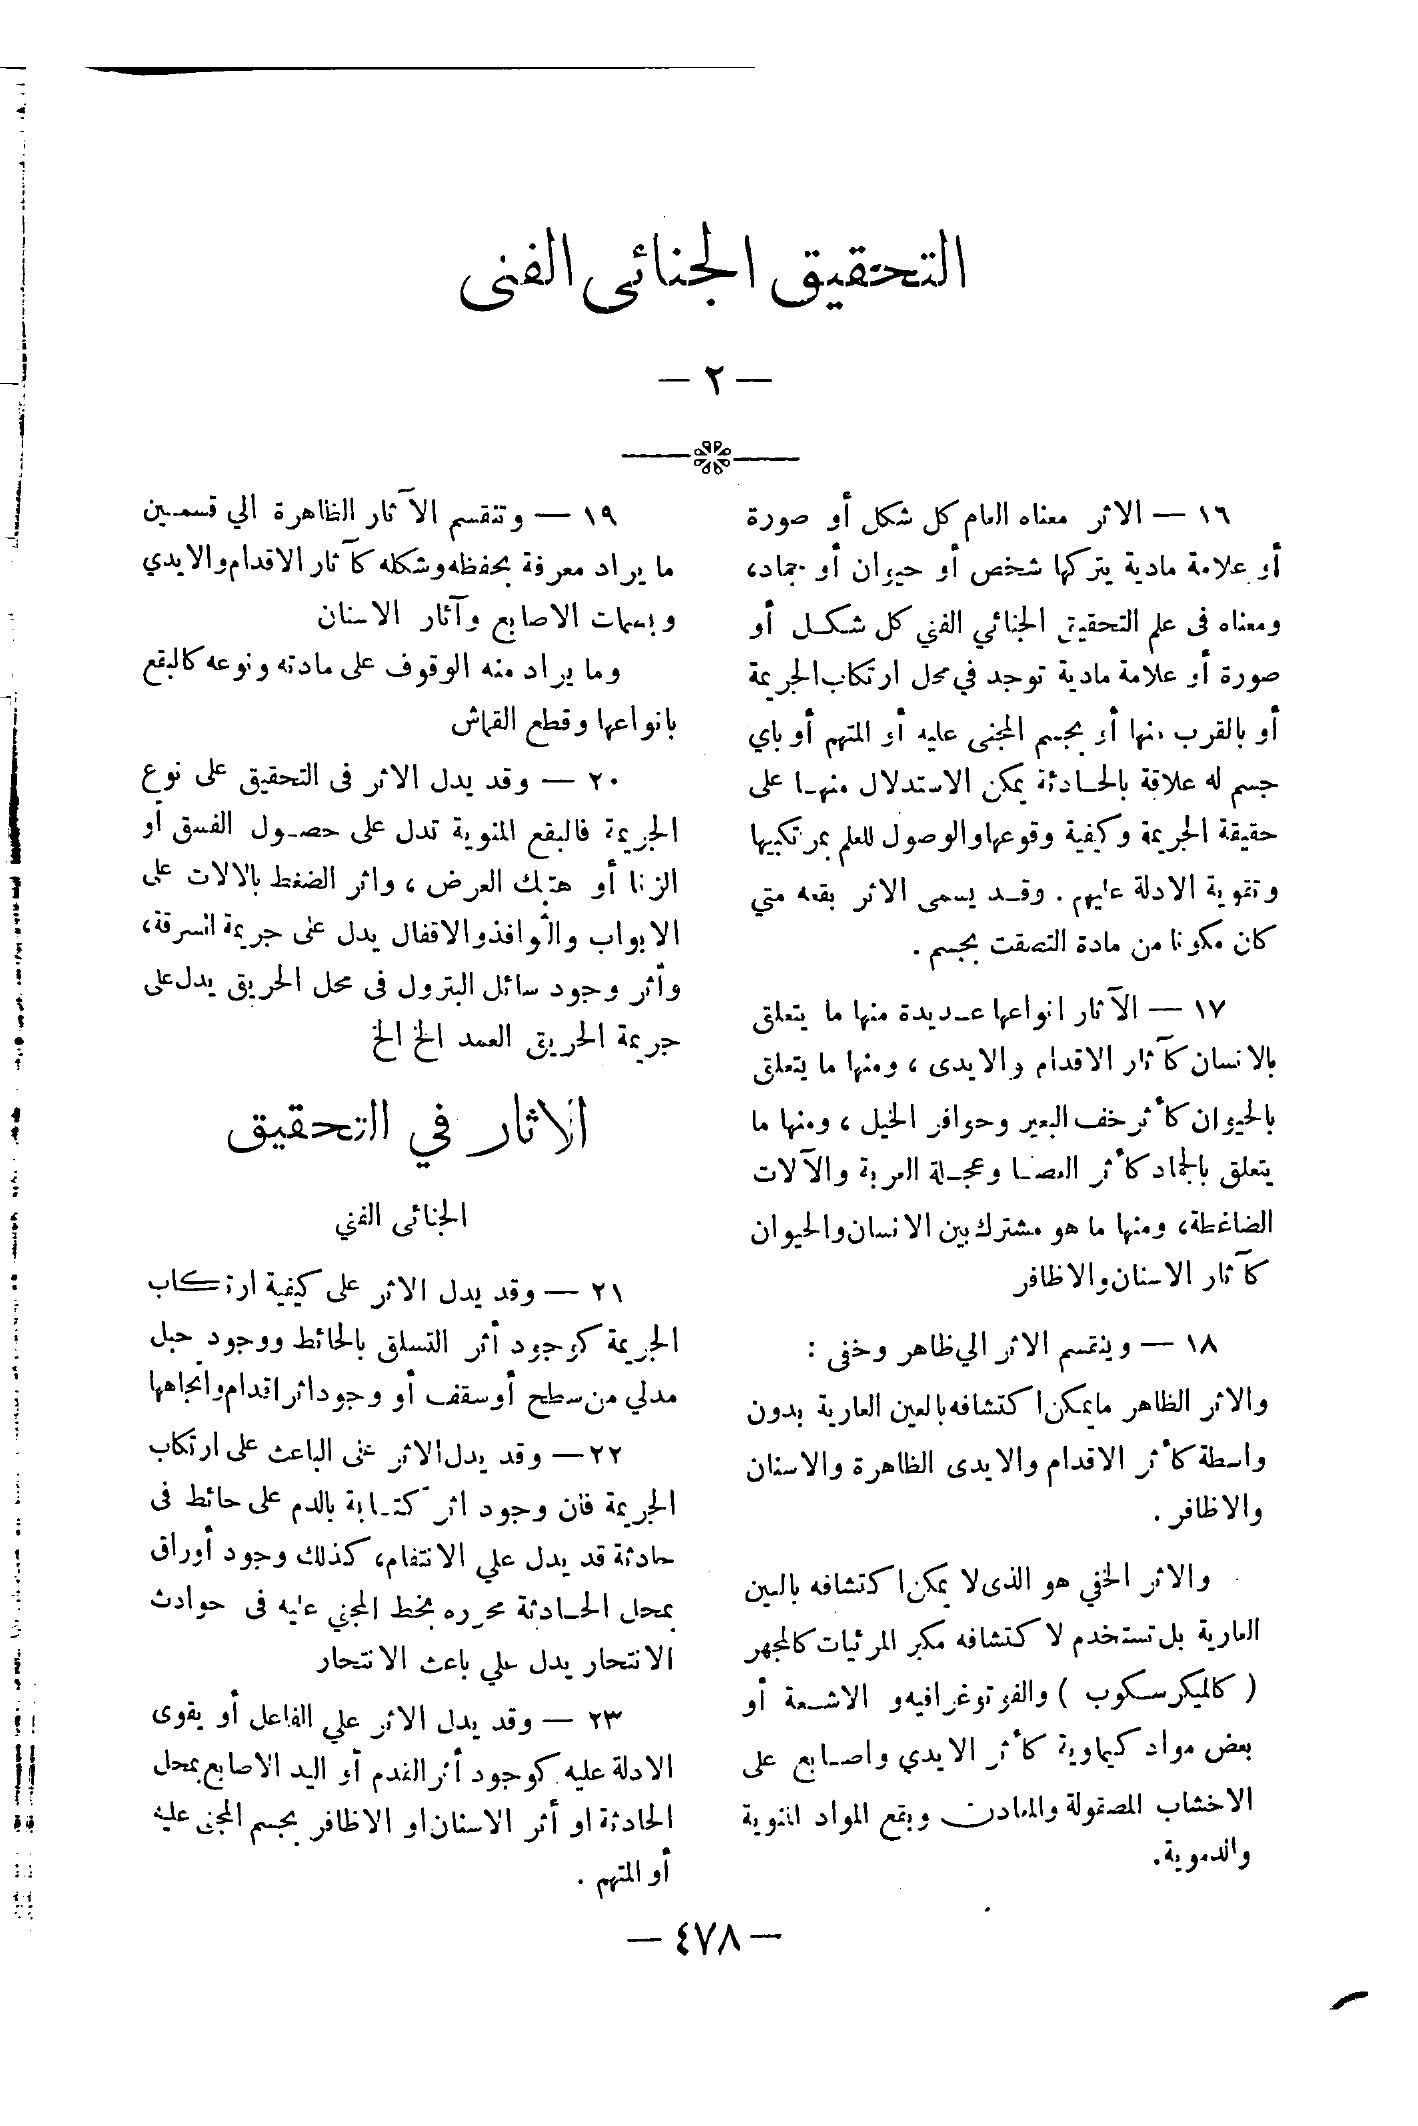 التحقيق الجنائى الفنى
— ٢ —
١٦ — الاثر معناه العام كل شكل أو صورة
أو علامة مادية يتركها شخص أو حيوان أو جماد،
ومعناه فى علم التحقيق الجنائي الفني كل شكل أو
صورة أو علامة مادية توجد في محل ارتكاب الجريمة
أو بالقرب منها أو بجسم المجنى عليه أو المتهم أو باي
جسم له علاقة بالحادثة يمكن الاستدلال منها على
حقيقة الجريمة وكيفية وقوعها والوصول للعلم بمرتكبيها
وتقوية الادلة عليهم . وقد يسمى الاثر بقعه متي
كان مكونا من مادة التصقت بجسم .
١٧ — الآثار انواعها عديدة منها ما يتعلق
بالانسان كآثار الاقدام والايدى ، ومنها ما يتعلق
بالحيوان كأثر خف البعير وحوافر الخيل ، ومنها ما
يتعلق بالجماد كأثر العصا وعجلة العربة والآلات
الضاغطة، ومنها ما هو مشترك بين الانسان والحيوان
كآثار الاسنان والاظافر
١٨ — وينقسم الاثر الي ظاهر وخفى :
والاثر الظاهر مايمكن اكتشافه بالعين العارية بدون
واسطة كأثر الاقدام والايدى الظاهرة والاسنان
والاظافر .
والاثر الخفي هو الذى لا يمكن اكتشافه بالعين
العارية بل تستخدم لاكتشافه مكبر المرئيات كالمجهر
( كالميكرسكوب ) والفوتوغرافيه و الاشعة أو
بعض مواد كيماوية كأثر الايدي واصابع على
الاخشاب المصقولة والمعادن وبقع المواد المنوية
والدموية.
١٩ — وتنقسم الآثار الظاهرة الي قسمين
ما يراد معرفة بحفظه وشكله كآثار الاقدام والايدي
وبصمات الاصابع وآثار الاسنان
وما يراد منه الوقوف على مادته ونوعه كالبقع
بانواعها وقطع القماش
٢٠ — وقد يدل الاثر فى التحقيق على نوع
الجريمة فالبقع المنوية تدل على حصول الفسق أو
الزنا أو هتك العرض ، واثر الضغط بالالات على
الابواب والنوافذ والاقفال يدل على جريمة السرقة،
وأثر وجود سائل البترول فى محل الحريق يدل على
جريمة الحريق العمد الخ الخ
الاثار في التحقيق
الجنائى الفني
٢١ — وقد يدل الاثر على كيفية ارتكاب
الجريمة كوجود أثر التسلق بالحائط ووجود حبل
مدلي من سطح أو سقف أو وجود اثر اقدام واتجاهها
٢٢ — وقد يدل الاثر على الباعث على ارتكاب
الجريمة فان وجود اثر كتابة بالدم على حائط فى
حادثة قد يدل علي الانتقام، كذلك وجود أوراق
بمحل الحادثة محرره بخط المجني عليه فى حوادث
الانتحار يدل علي باعث الانتحار
٢٣ — وقد يدل الاثر علي الفاعل أو يقوى
الادلة عليه كوجود أثر القدم أو اليد الاصابع بمحل
الحادثة او أثر الاسنان او الاظافر بجسم المجنى عليه
أو المتهم .
— ٤٧٨ —